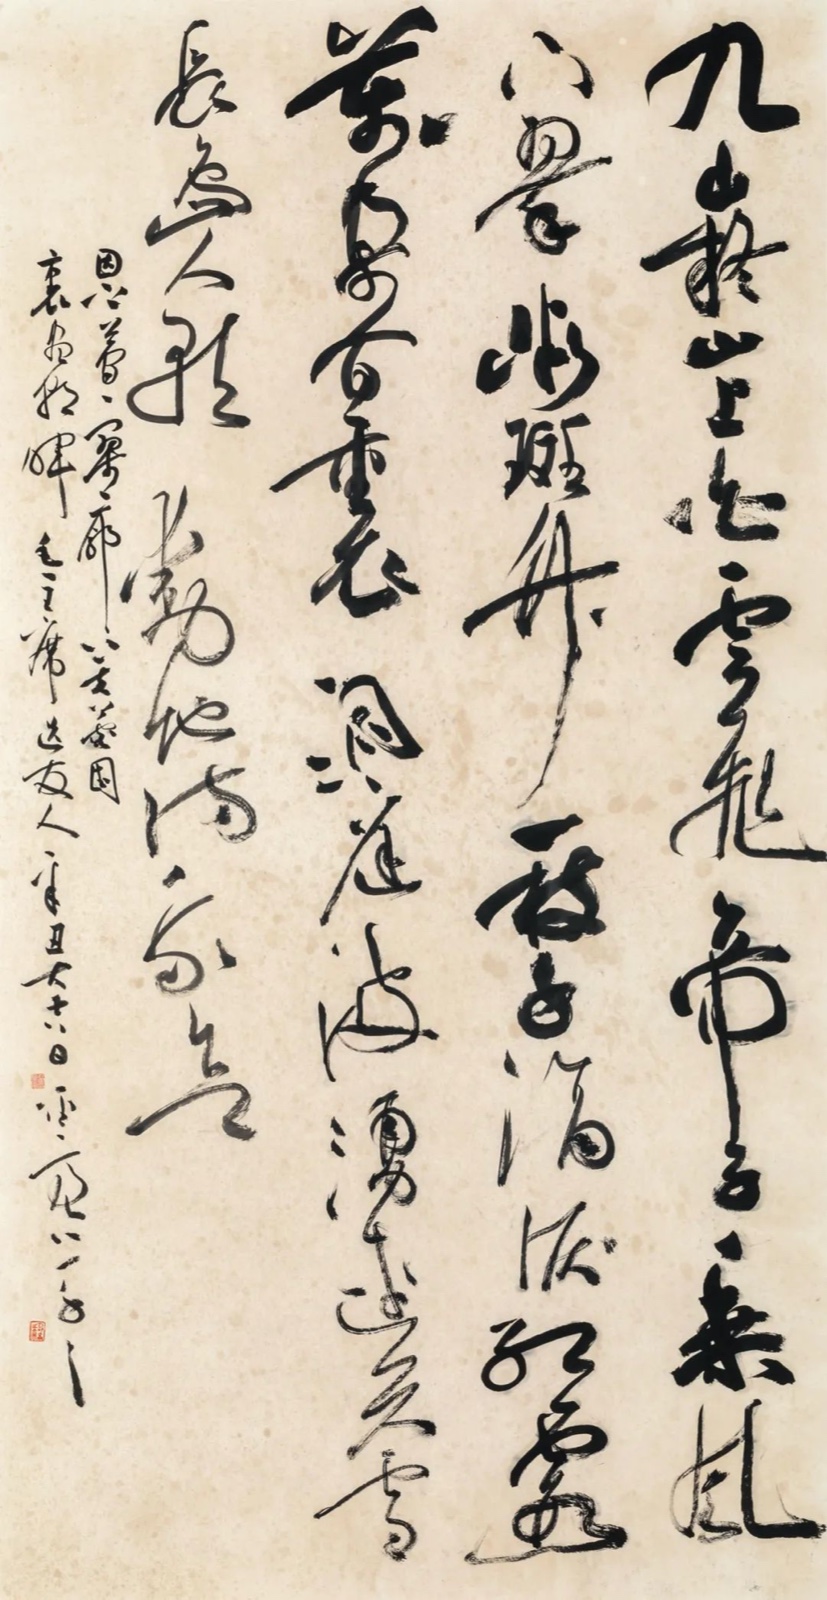 九嶷山上白雲飛帝子乘風
下翠微斑竹一枝千滴淚紅霞
萬朵百重衣洞庭波湧連天雪
長島人歌動地詩我欲
因之夢寥廓芙蓉國
裏盡朝暉 毛主席 友人 辛丑 十八日